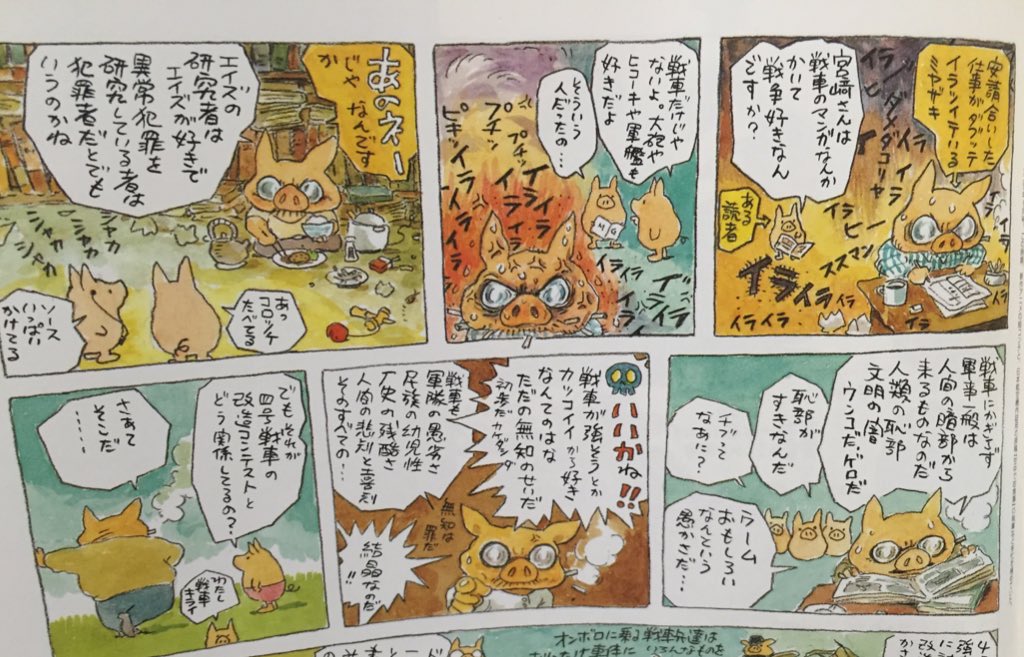 安請合いした
仕事がダブッテ
イラツイテいる
ミヤザキ
宮崎さんは
戦車のマンガなんか
かいて
戦争好きなん
ですか?
ある
読者
イライラ
戦車だけじゃ
ないよ。大砲や
ヒコーキや軍艦も
好きだよ
そういう
人だったの…
プチン
プチッ
ピキッ
イライラ
あのネー
じゃ なんです
か
エイズの
研究者は
エイズが好きで
異常犯罪を
研究している者は
犯罪者だとでも
いうのかね
シャカ
シャカ
シャカ
あっ
コロッケ
たべてる
ソース
いっぱい
かけてる
戦車にかぎらず
軍事一般は
人間の暗部から
来るものなのだ
人類の恥部
文明の闇
ウンコだ・ゲロだ
恥部が
すきなんだ
チブって
なあに?
ウーム
おもしろい
なんという
愚かさだ…
いいかね!!
戦車が強そうとか
カッコイイから好き
なんてのはな
ただの無知のせいだ
初歩だカケダシダ
戦車も
軍隊の愚劣さ
民族の幼児性
歴史の残酷さ
人間の悲惨と喜劇
そのすべての…
無知は
罪だ
結晶なのだ
!!
でもそれが
四号戦車の
改造コンテストと
どう関係してるの?
さあて
そこだ
……
わたし
戦車
キライ
オンボロに乗る戦車兵達は